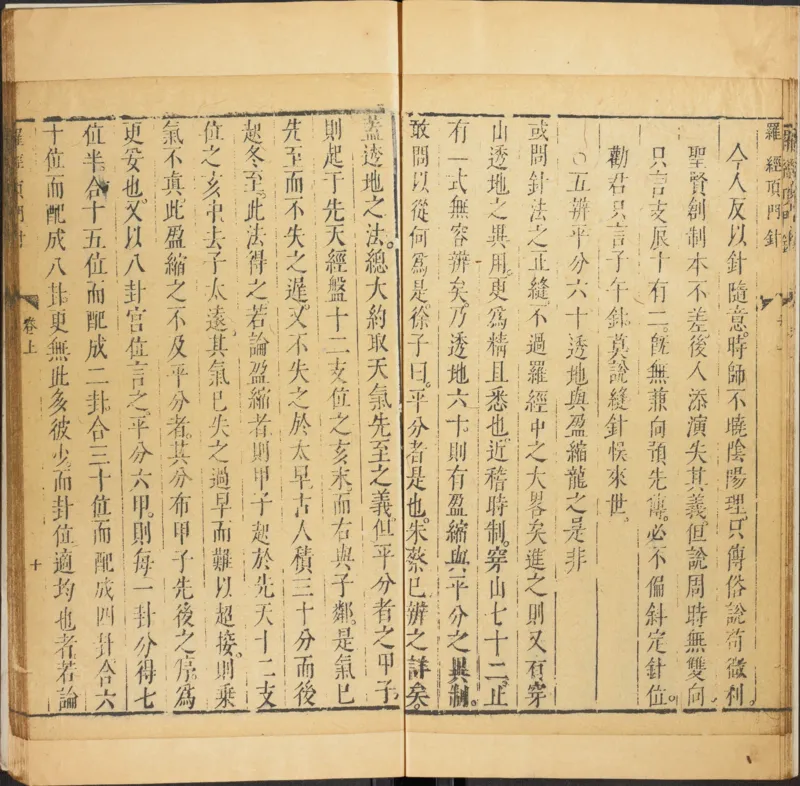 羅經頂門針
今人反以針隨意時師不曉陰陽理只傳俗說苟徼利
聖賢創制本不差後人添演失其義但說周時無雙向
只言支辰十有二旣無兼向預先傳必不偏斜定針位
勸君只言子午針莫說縫針悞來世
○五辨平分六十透地與盈縮龍之是非
或問針法之正縫不過羅經中之大畧矣進之則又有穿
山透地之異用更爲精且悉也近稽時制穿山七十二止
有一式無容辨矣乃透地六十則有盈縮與平分之異制
敢問以從何爲是徐子曰平分者是也朱蔡已辨之詳矣
蓋透地之法總大約取天氣先至之義但平分者之甲子
則起于先天經盤十二支位之亥末而右與子鄰是氣已
先至而不失之遲又不失之於太早古人積三十分而後
起冬至此法得之若論盈縮者則甲子起於先天十二支
位之亥中去子太遠其氣已失之過早而難以超接則乘
氣不眞此盈縮之不及平分者其分布甲子先後之序爲
更妥也又以八卦宮位言之平分六甲則每一卦分得七
位半合十五位而配成二卦合三十位而配成四卦合六
十位而配成八卦更無此多彼少而卦位適均也者若論
羅經頂門針
卷上
十